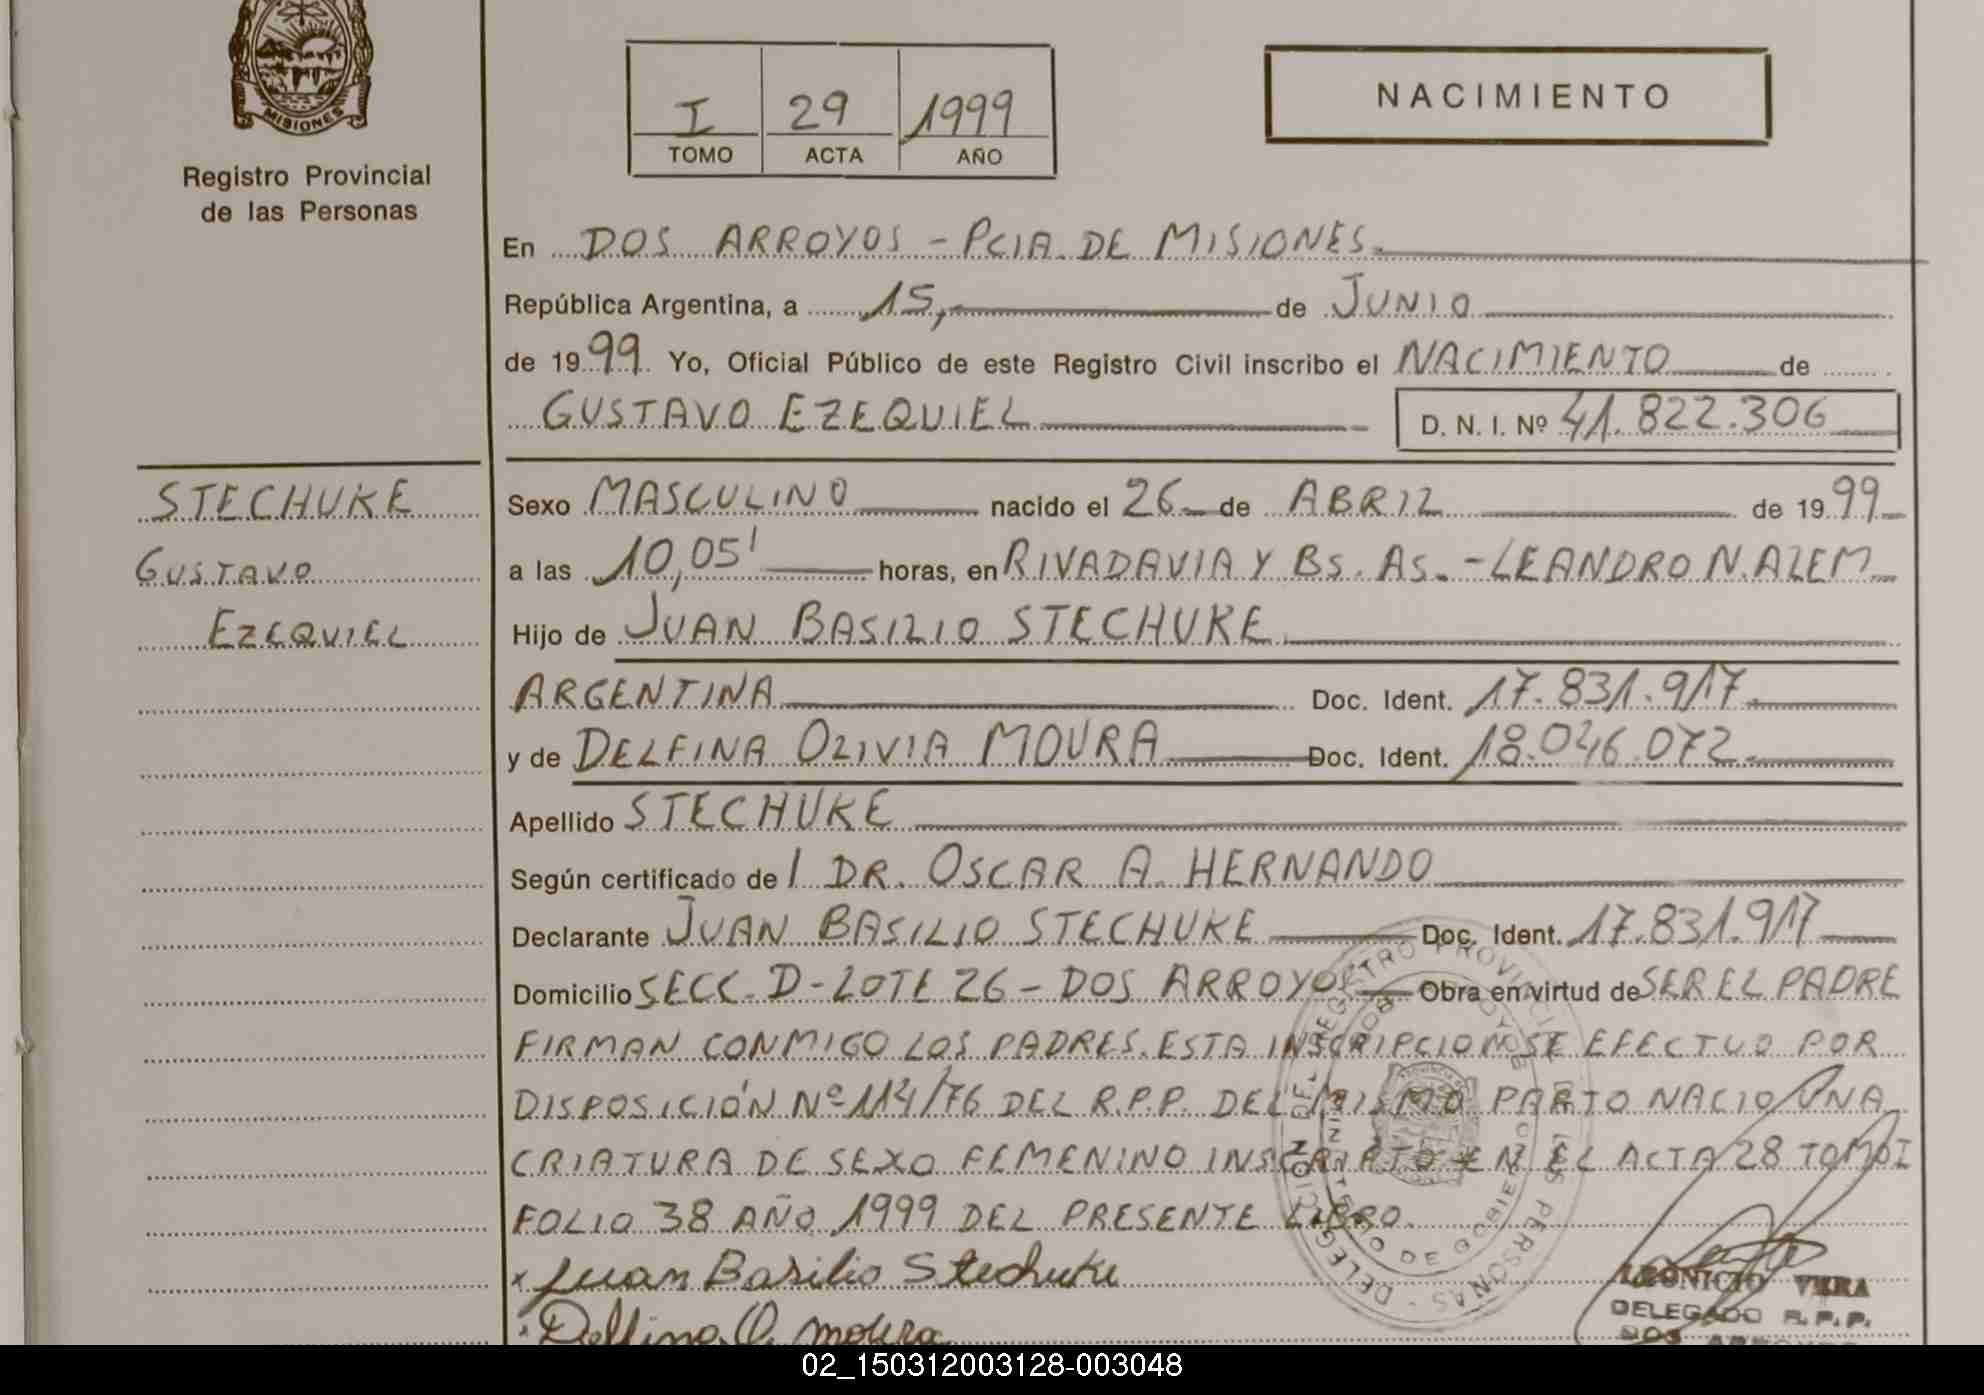 MISIONES
Registro Provincial
de las Personas
I 29 1999
TOMO ACTA AÑO
NACIMIENTO
En DOS ARROYOS - PCIA. DE MISIONES.
República Argentina, a 15, de JUNIO
de 1999 Yo, Oficial Público de este Registro Civil inscribo el NACIMIENTO de
GUSTAVO EZEQUIEL D. N. I. Nº 41.822.306
STECHUKE
GUSTAVO
EZEQUIEL
Sexo MASCULINO nacido el 26 de ABRIL de 1999
a las 10,05' horas, en RIVADAVIA Y BS. AS. - LEANDRO N. ALEM
Hijo de JUAN BASILIO STECHUKE
ARGENTINA Doc. Ident. 17.831.917
y de DELFINA OLIVIA MOURA Doc. Ident. 18.046.072
Apellido STECHUKE
Según certificado de l DR. OSCAR A. HERNANDO
Declarante JUAN BASILIO STECHUKE Doc. Ident. 17.831.917
Domicilio SECC. D - LOTE 26 - DOS ARROYOS Obra en virtud de SER EL PADRE
FIRMAN CONMIGO LOS PADRES. ESTA INSCRIPCION SE EFECTUO POR
DISPOSICIÓN Nº 114/76 DEL R.P.P. DEL MISMO PARTO NACIO UNA
CRIATURA DE SEXO FEMENINO INSCRIPTO EN EL ACTA 28 TOMO I
FOLIO 38 AÑO 1999 DEL PRESENTE LIBRO.
x Juan Basilio Stechuke
Delfina O. Moura
LEONICIO VERA
DELEGADO R.P.P.
DOS ARROYOS
02_150312003128-003048